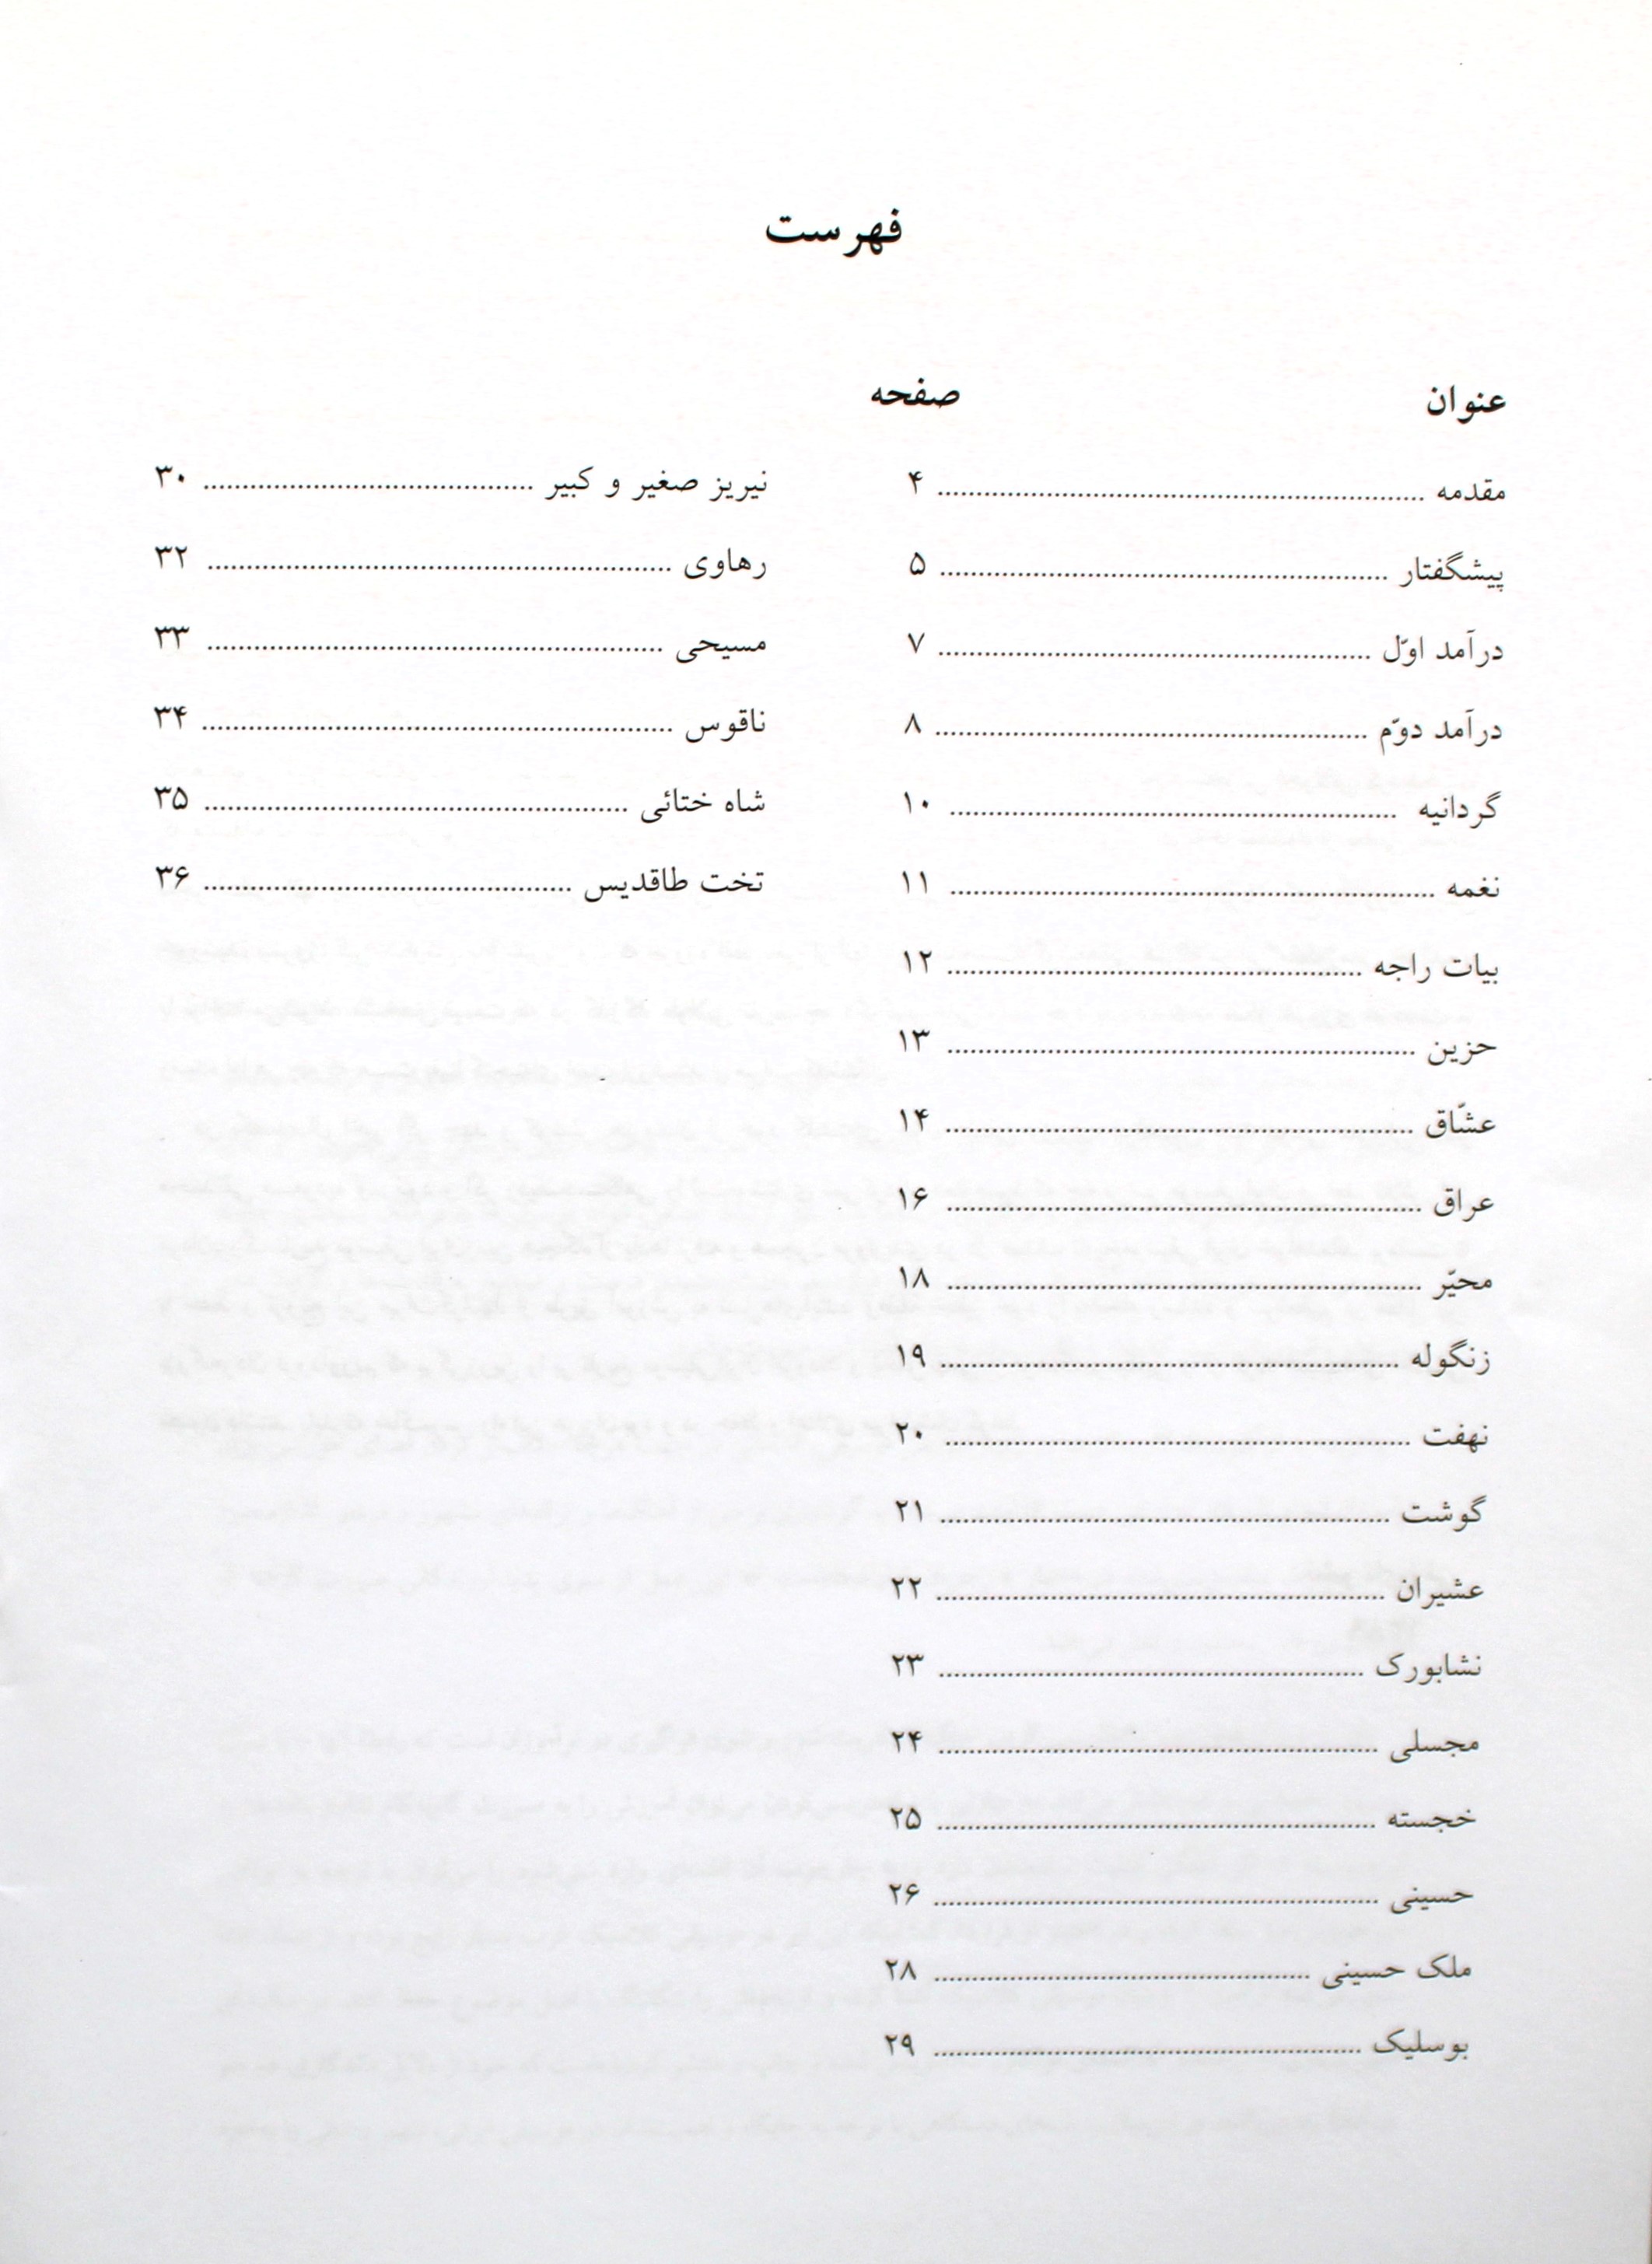 فهرست
عنوان صفحه
مقدمه ........ ۴
پیشگفتار ........ ۵
درآمد اوّل ........ ۷
درآمد دوّم ........ ۸
گردانیه ........ ۱۰
نغمه ........ ۱۱
بیات راجه ........ ۱۲
حزین ........ ۱۳
عشّاق ........ ۱۴
عراق ........ ۱۶
محیّر ........ ۱۸
زنگوله ........ ۱۹
نهفت ........ ۲۰
گوشت ........ ۲۱
عشیران ........ ۲۲
نشابورک ........ ۲۳
مجسلی ........ ۲۴
خجسته ........ ۲۵
حسینی ........ ۲۶
ملک حسینی ........ ۲۸
بوسلیک ........ ۲۹
نیریز صغیر و کبیر ........ ۳۰
رهاوی ........ ۳۲
مسیحی ........ ۳۳
ناقوس ........ ۳۴
شاه ختائی ........ ۳۵
تخت طاقدیس ........ ۳۶